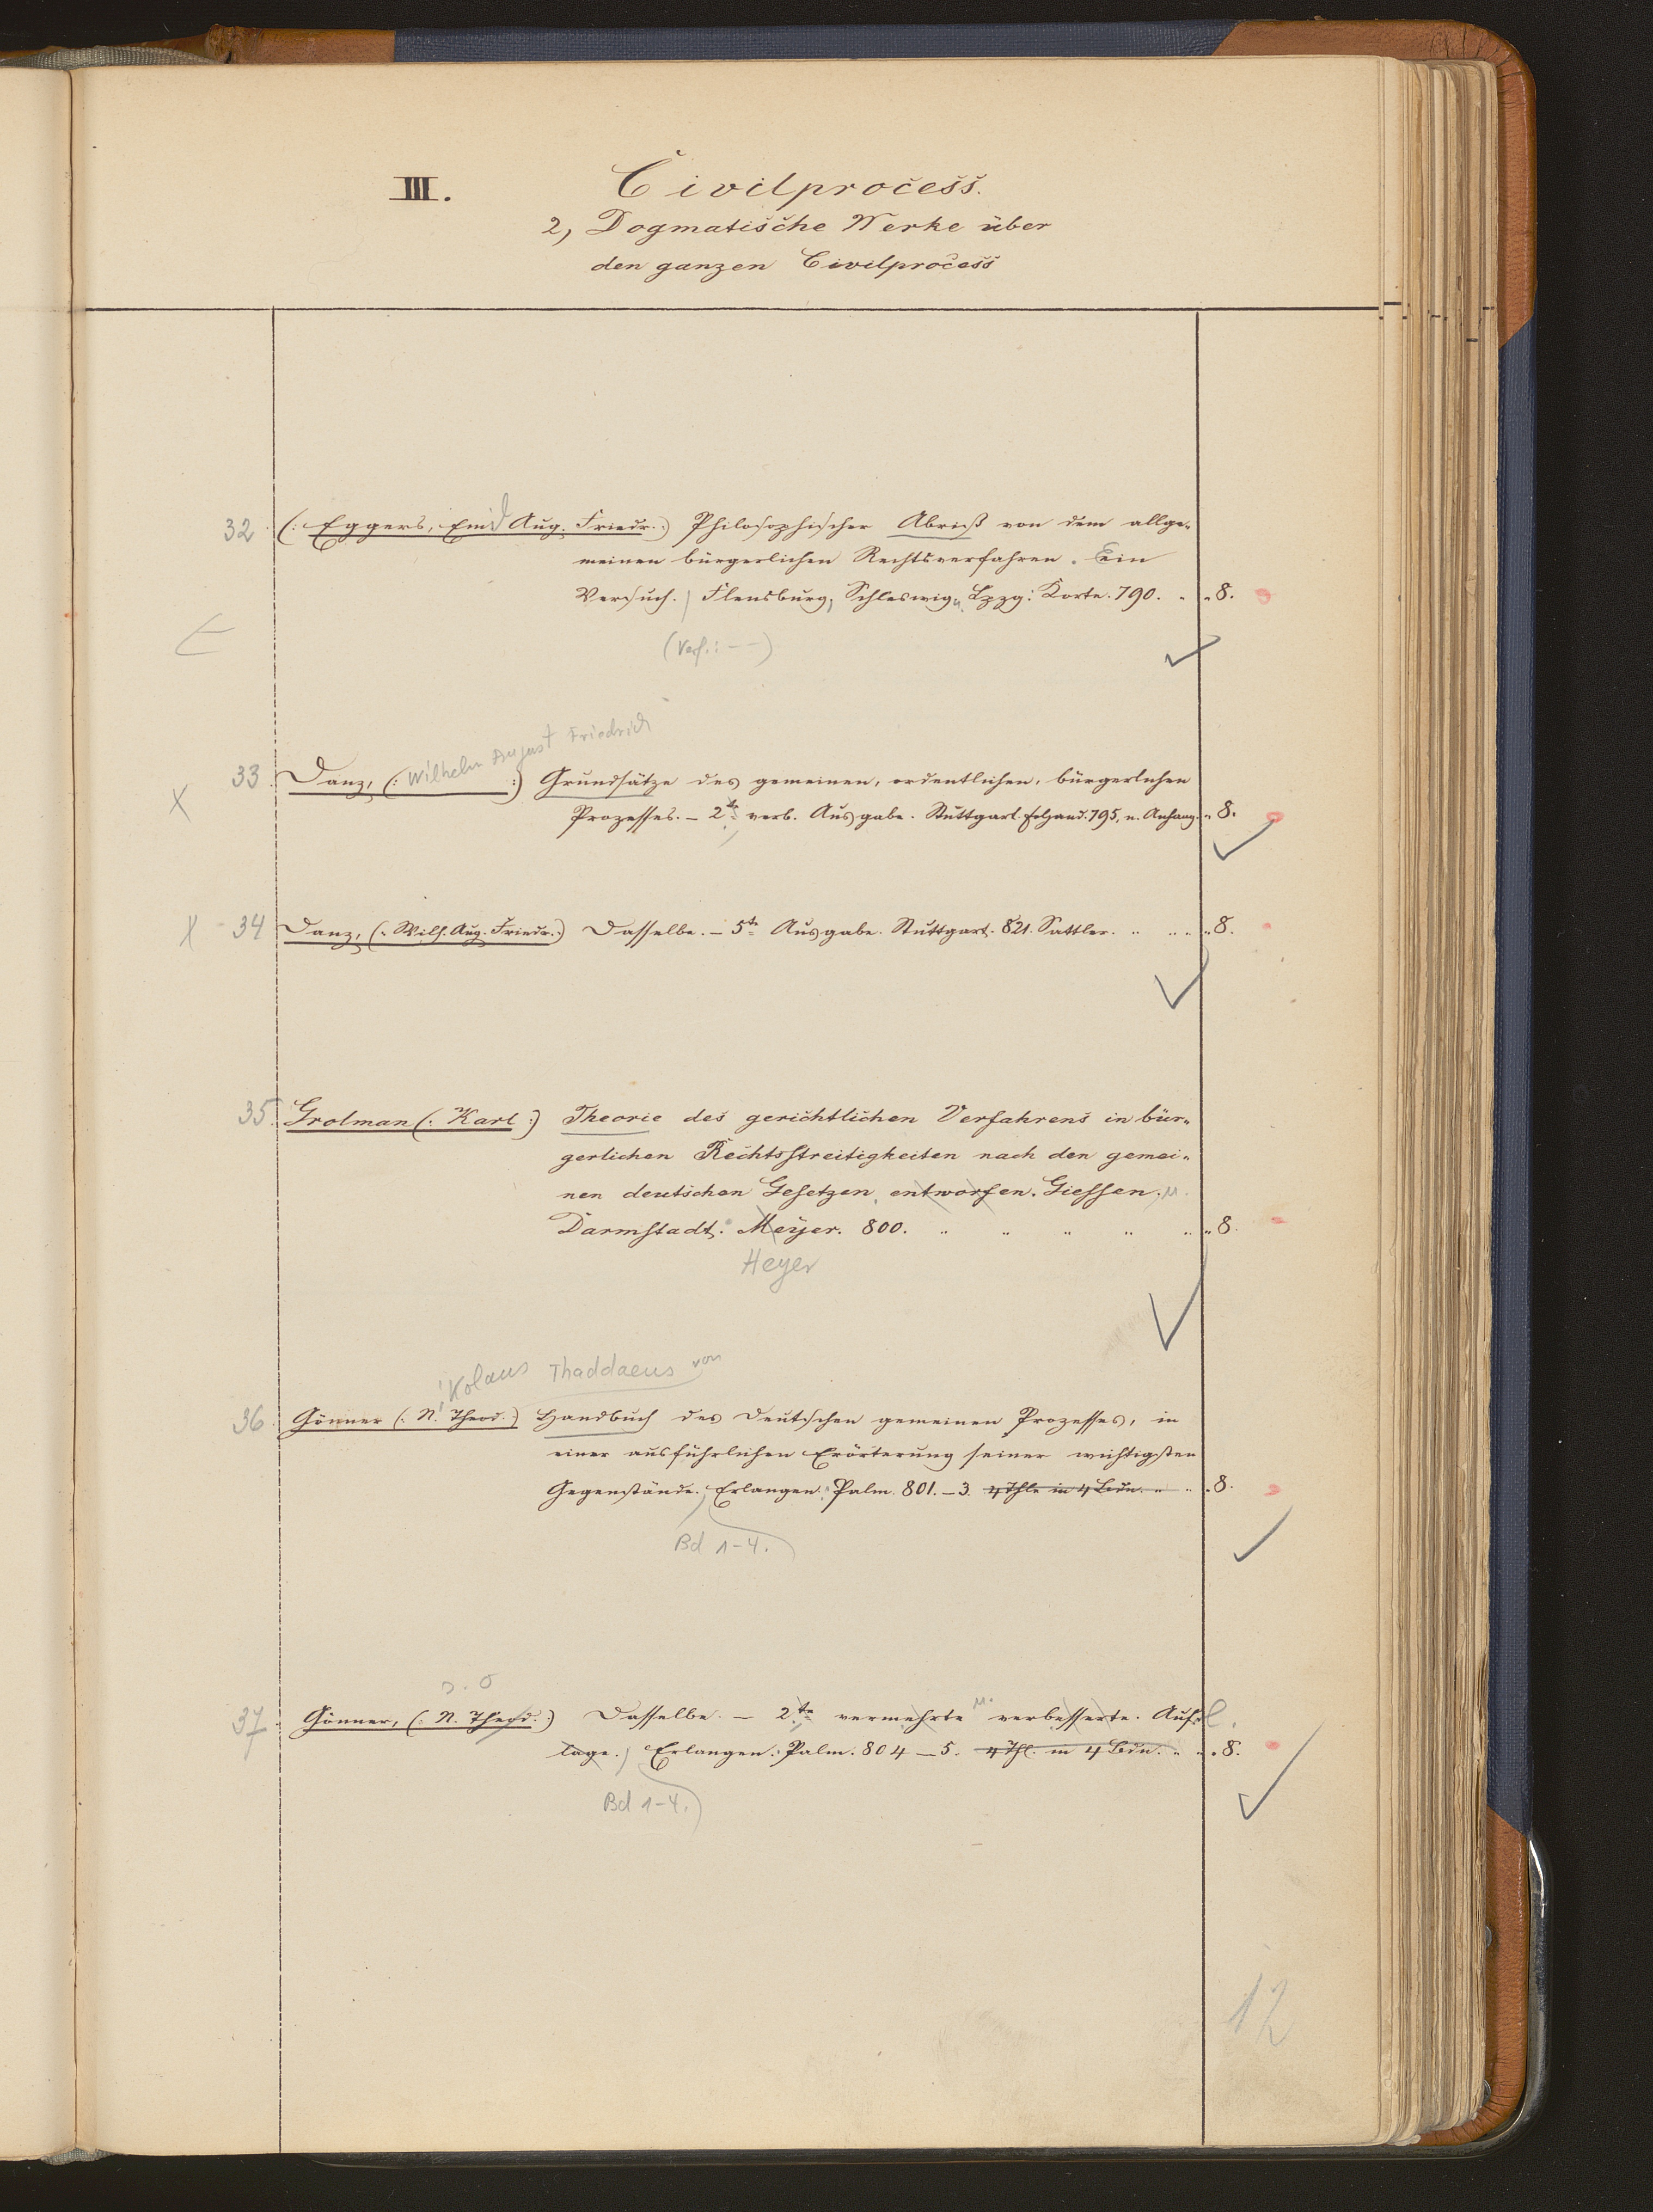 III. Civilprocess.
2, Dogmatische Werke über
den ganzen Civilprocess
32 (: Eggers, Emid Aug. Friedr. :) Philosophischer Abriß von dem allge-
meinen bürgerlichen Rechtsverfahren. Ein
Versuch. Flensburg, Schleswig u. Lpzg: Korte. 790. 8.
(Verf.: — —)
Wilhelm August Friedrich
33. Danz, (: :) Grundsätze des gemeinen, ordentlichen, bürgerlichen
X Prozesses. — 2te verb. Ausgabe. Stuttgart. Erhard. 795, u. Anhang. 8.
X 34 Danz, (: Wilh. Aug. Friedr. :) Dasselbe. — 5te Ausgabe. Stuttgart. 821. Sattler. 8.
35. Grolman (: Karl :) Theorie des gerichtlichen Verfahrens in bür-
gerlichen Rechtsstreitigkeiten nach den gemei-
nen deutschen Gesetzen entworfen. Giessen, u.
Darmstadt: Meyer. 800. 8.
Heyer
ikolaus Thaddaeus von
36. Gönner (: N. Theod. :) Handbuch des deutschen gemeinen Prozesses, in
einer ausführlichen Erörterung seiner wichtigsten
Gegenstände. Erlangen: Palm. 801. — 3. 4 Thle in 4 Bdn. 8.
Bd 1-4.
s. o
37. Gönner, (: N. Theod. :) Dasselbe. — 2te vermehrte u. verbesserte. Aufl.
lage. Erlangen: Palm. 804 — 5. 4 Thl. in 4 Bdn. 8.
Bd 1-4.
12